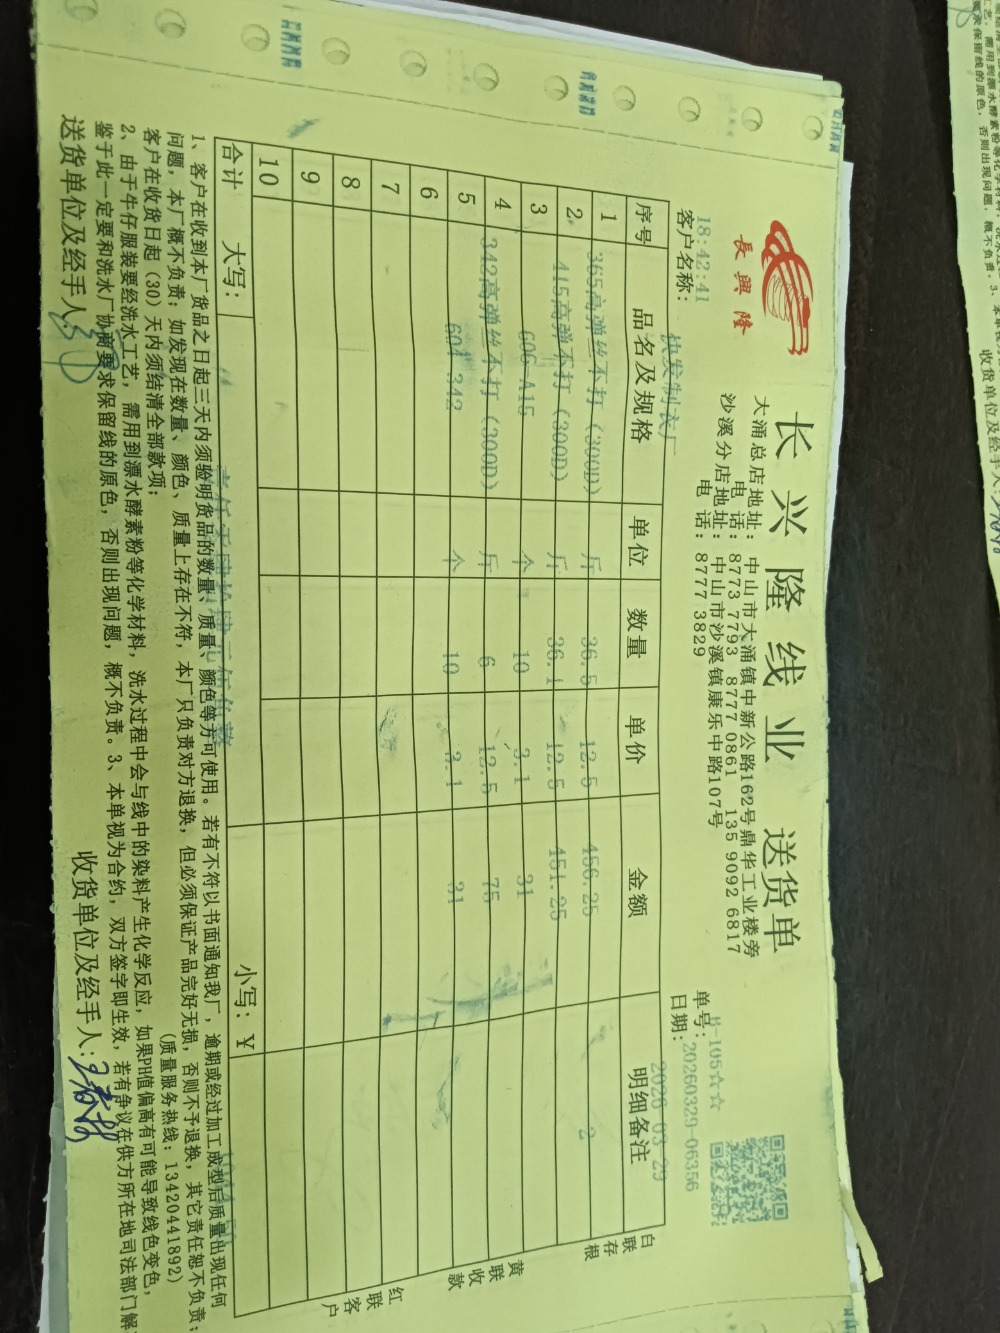 长兴隆线业 送货单
長興隆
大涌总店地址：中山市大涌镇中新公路162号鼎华工业楼旁
电 话：8773 7793 8777 0861 135 9092 6817
沙溪分店地址：中山市沙溪镇康乐中路107号
电 话：8777 3829
18:42:41
单号：20260329-06356
客户名称：快发制衣厂
日期：2026-03-29
序号 品名及规格 单位 数量 单价 金额 明细备注
1 365高弹丝不打(300D) 斤 36.5 12.5 456.25 2
2 415高弹不打(300D) 斤 36.1 12.5 451.25
3 606-A15 个 10 3.1 31
4 342高弹丝不打(300D) 斤 6 12.5 75
5 604 342 个 10 3.1 31
6
7
8
9
10
合计 大写： 小写：￥
白联存根
黄联收款
红联客户
1、客户在收到本厂货品之日起三天内须验明货品的数量、质量、颜色等方可使用。若有不符以书面通知我厂，逾期或经过加工成型后质量出现任何
问题，本厂概不负责；如发现在数量、颜色、质量上存在不符，本厂只负责对方退换，但必须保证产品完好无损，否则不予退换，其它责任恕不负责；
客户在收货日起（30）天内须结清全部款项； (质量服务热线：13420441892)
2、由于牛仔服装要经洗水工艺，需用到漂水酵素粉等化学材料，洗水过程中会与线中的染料产生化学反应，如果PH值偏高有可能导致线色变色，
鉴于此一定要和洗水厂协商要求保留线的原色，否则出现问题，概不负责。3、本单视为合约，双方签字即生效，若有争议在供方所在地司法部门解
送货单位及经手人： 收货单位及经手人：